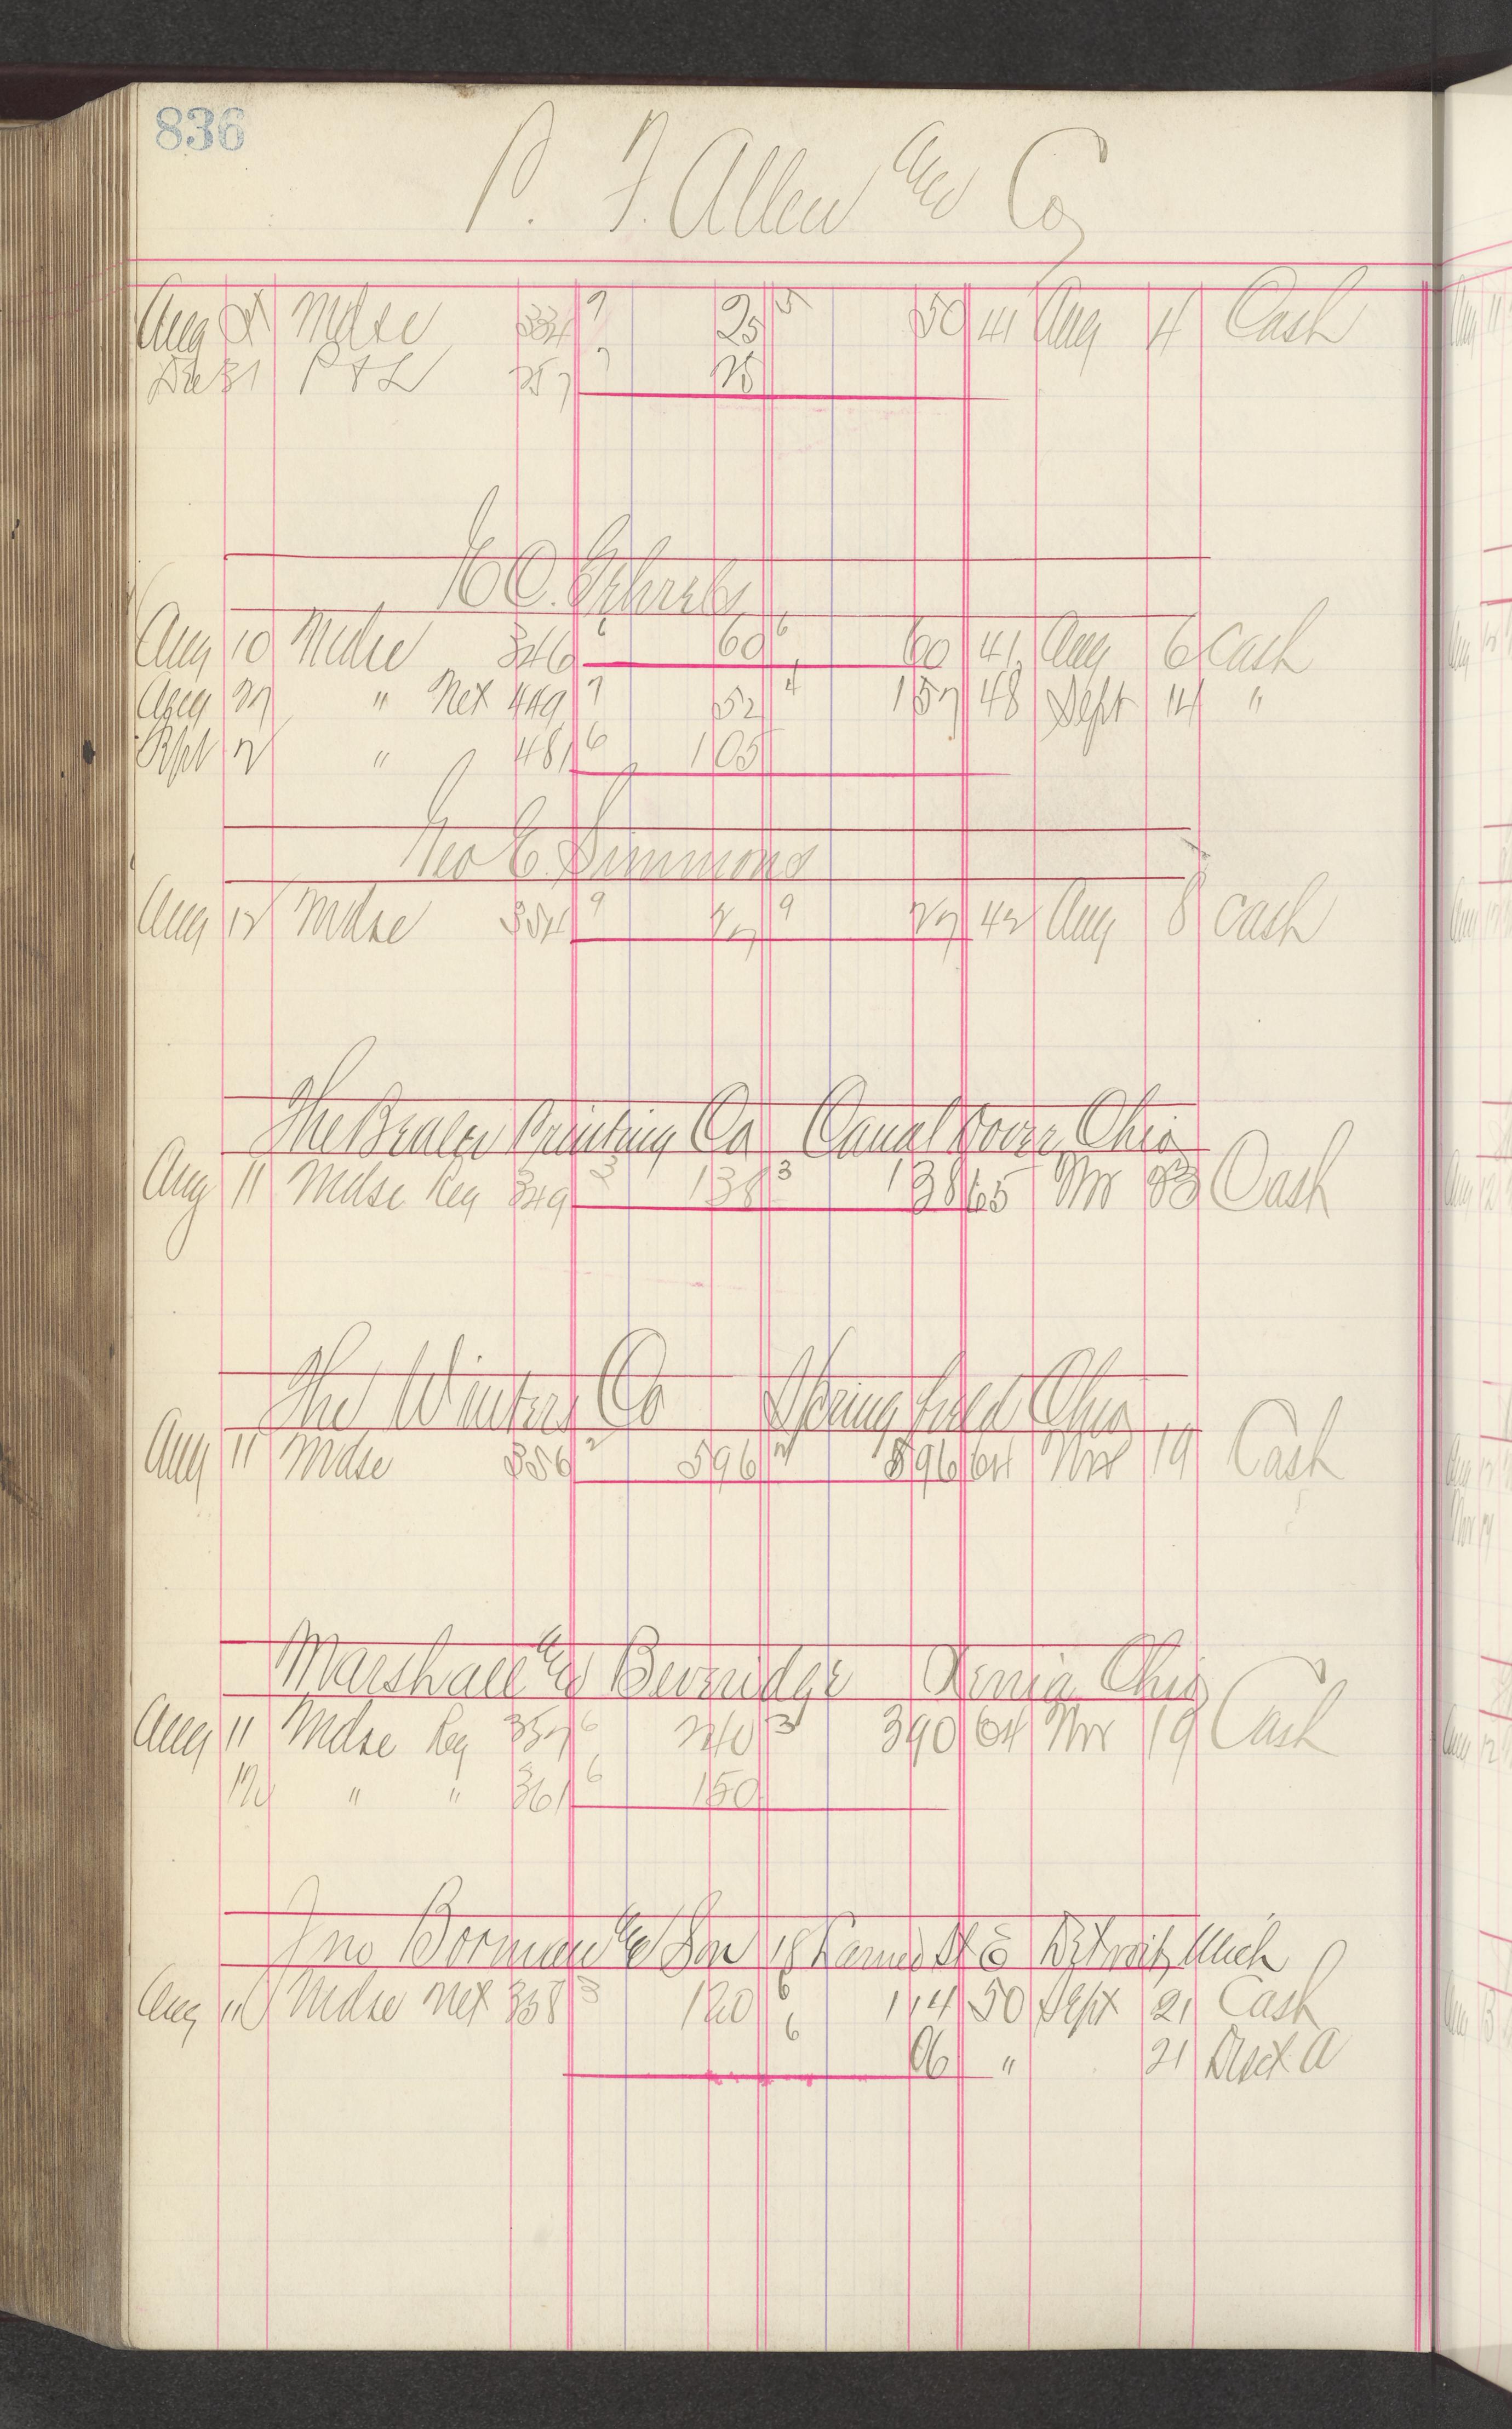 836
P. F. Allen and Co
Aug 8 Mdse 334 7 25 5 50 41 Aug 4 Cash
Dec 31 P & L 257 7 25
E C.
Aug 10 Mdse 346 6 60 6 60 41 Aug 6 Cash
Aug 27 " Net 449 7 52 4 157 48 Sept 14 "
Sept 2 " 481 6 105
Geo E. Simmons
Aug 12 Mdse 354 9 27 9 27 42 Aug 8 Cash
The Printing Co Canal Dover, Ohio
Aug 11 Mdse Reg 349 3 138 3 138 65 Nov 23 Cash
The Winters Co Springfield Ohio
Aug 11 Mdse 356 2 596 4 596 64 Nov 19 Cash
Marshall and Beveridge Xenia Ohio
Aug 11 Mdse Reg 357 6 240 3 390 64 Nov 19 Cash
12 " " 361 6 150
Jno Borman & Son St E Detroit, Mich
Aug 11 Mdse Net 358 3 120 6 114 50 Sept 21 Cash
6 06 " 21 Disct A